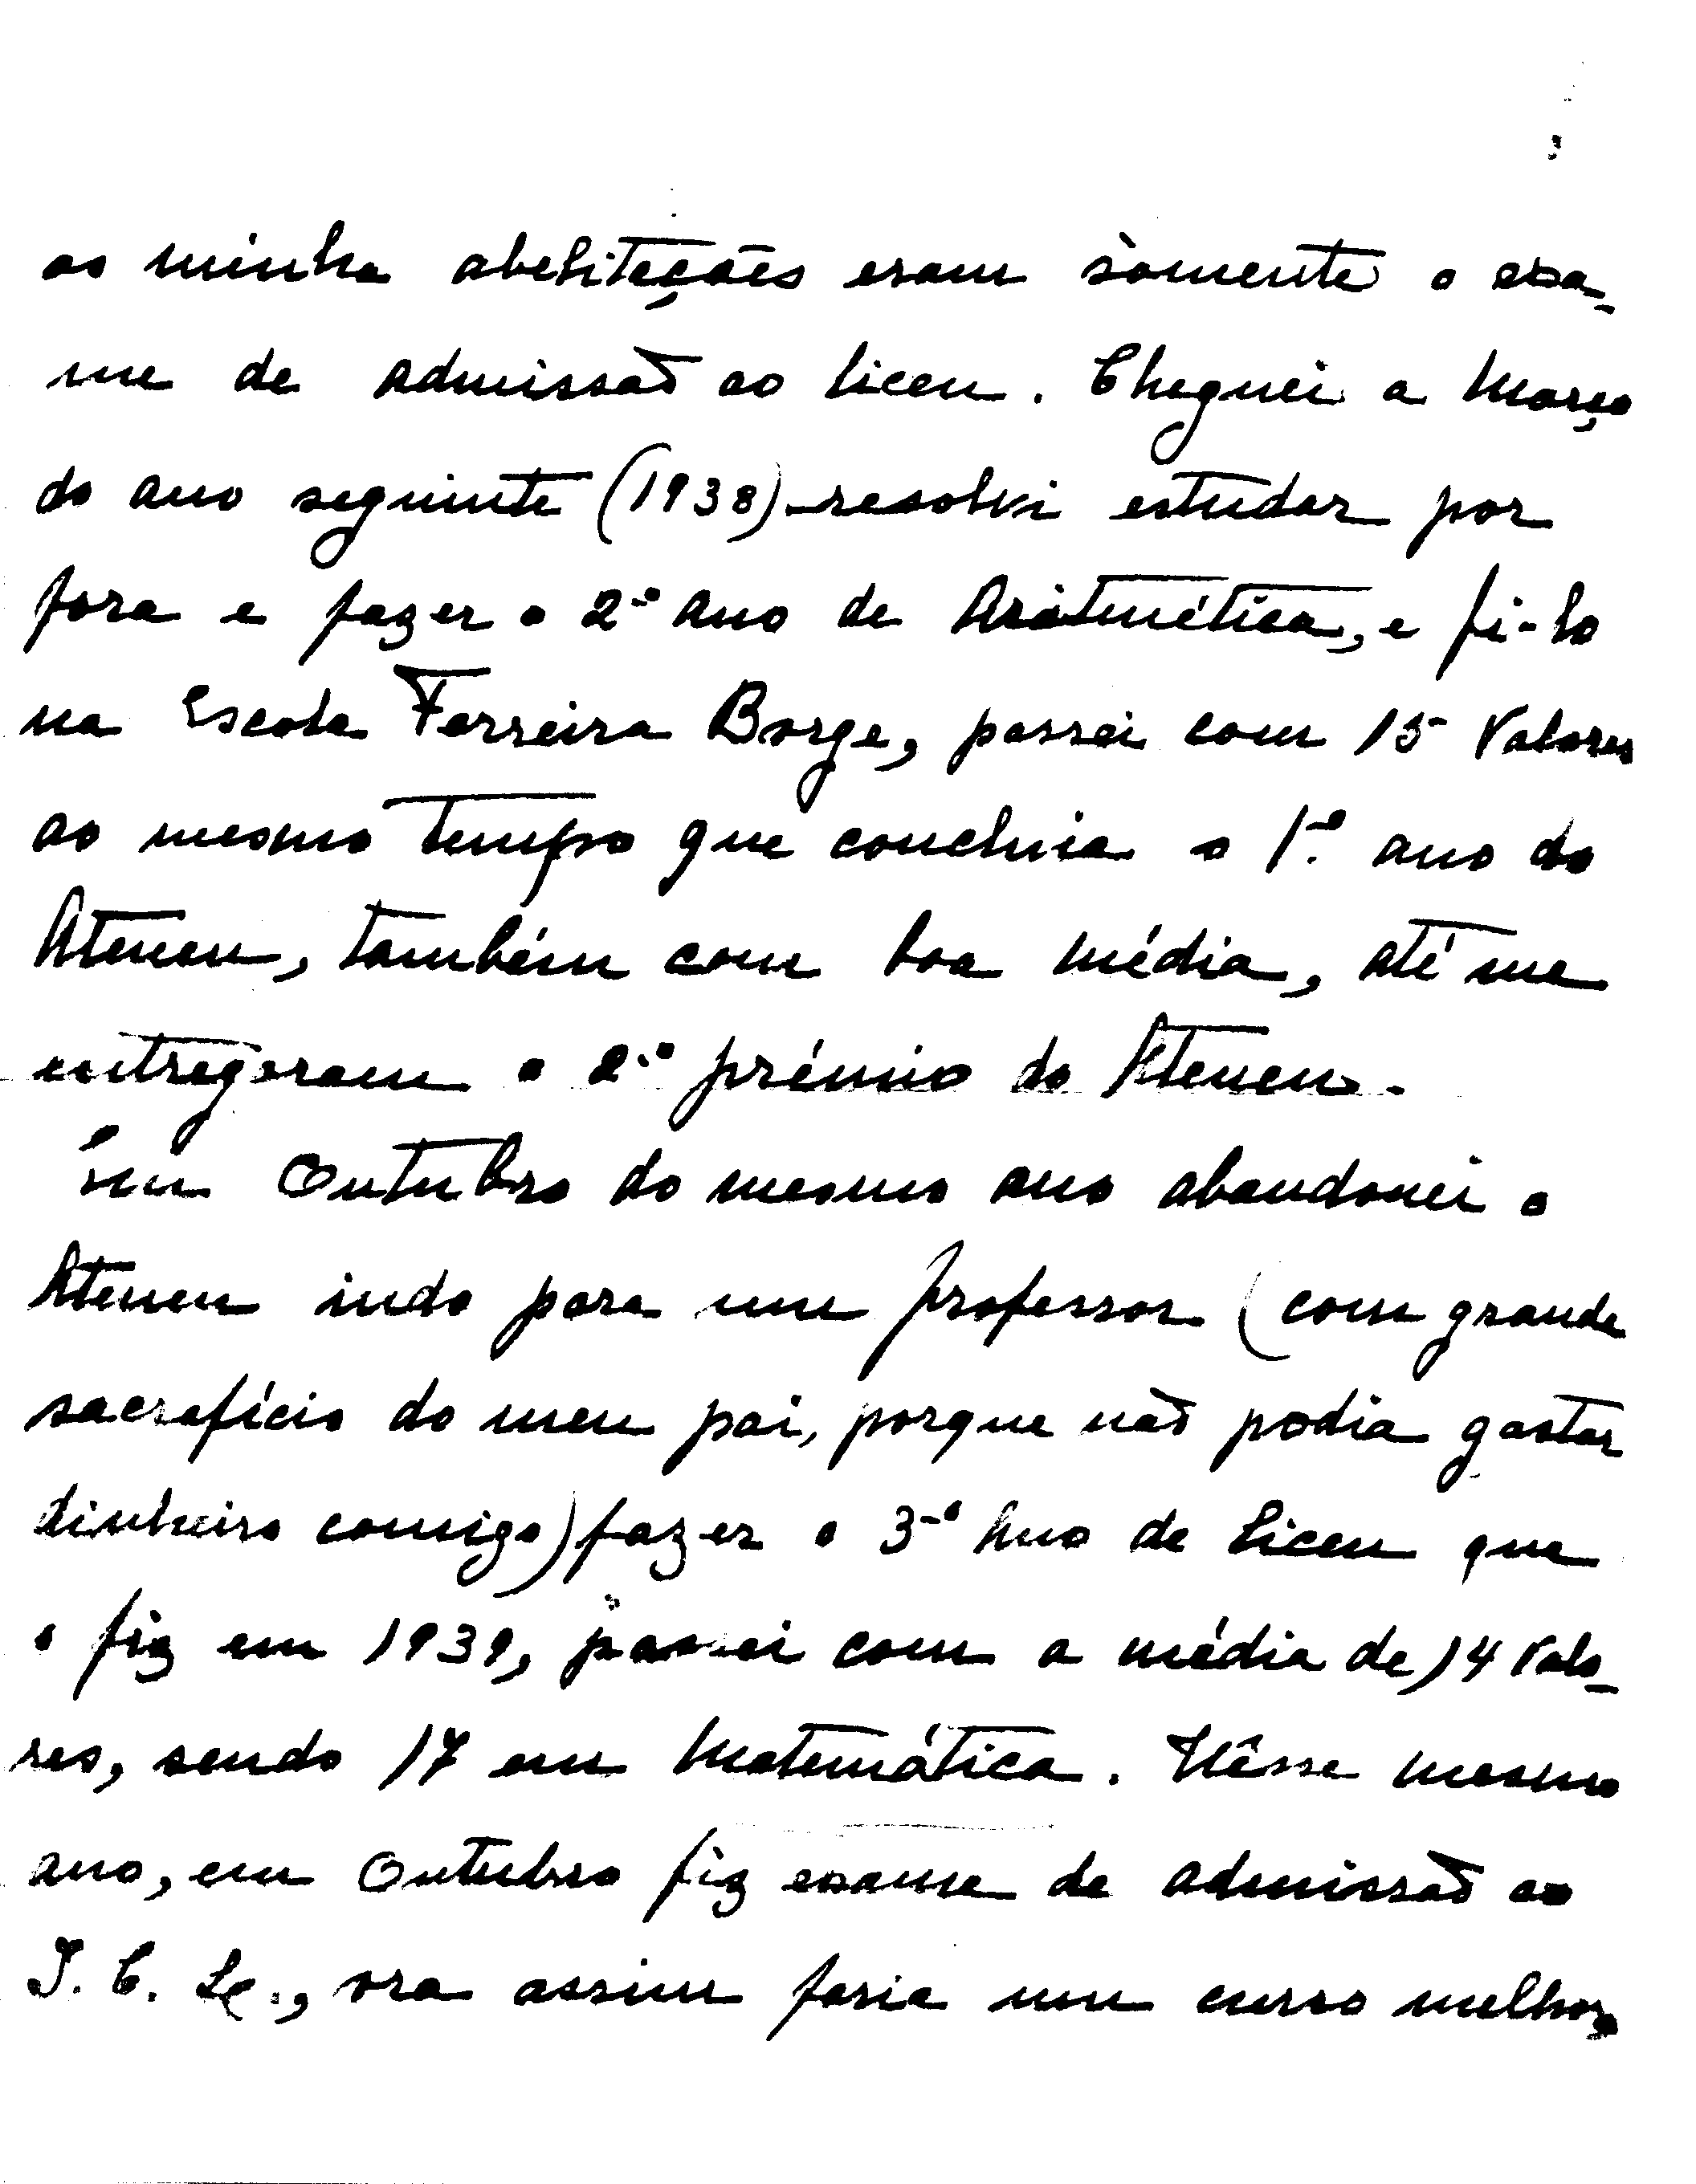 as minha abelitações eram sòmente o exa-
me de admissão ao liceu. Cheguei a Março
do ano seguinte (1938) resolvi estudar por
fora e fazer o 2º ano de Aritmética, e fi-lo
na Escola Ferreira Borge, passei com 15 Valores
ao mesmo tempo que concluia o 1º ano do
Ateneu, também com boa média, até me
entregaram o 2º prémio do Ateneu.
Em Outubro do mesmo ano abandonei o
Ateneu indo para um professor (com grande
sacrefício do meu pai, porque não podia gastar
dinheiro comigo) fazer o 3º Ano de Liceu que
o fiz em 1939, passei com a média de 14 Valo-
res, sendo 17 em Matemática. Nêsse mesmo
ano, em Outubro fiz exame de admissão ao
I. C. L., ora assim faria um curso melhor,